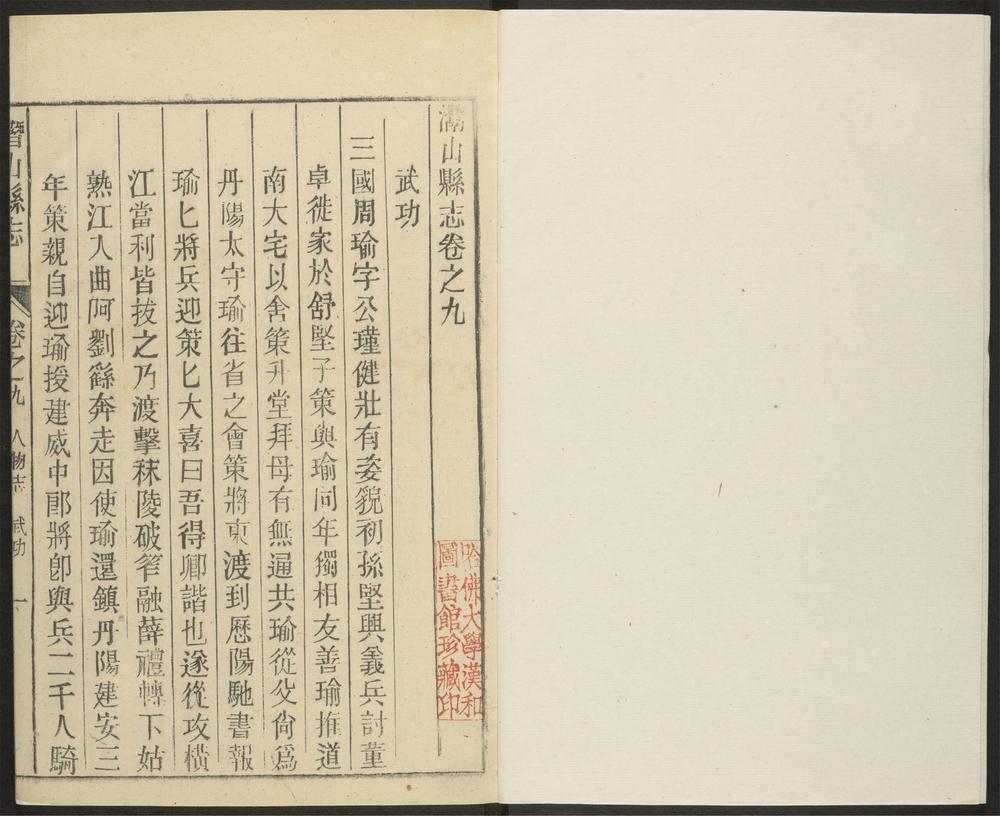 潛山縣志卷之九
武功
三國周瑜字公瑾健壯有姿貌初孫堅興義兵討董
卓徙家於舒堅子策與瑜同年獨相友善瑜推道
南大宅以舍策升堂拜母有無通共瑜從父尚爲
丹陽太守瑜往省之會策將東渡到歷陽馳書報
瑜匕將兵迎策匕大喜曰吾得卿諧也遂從攻橫
江當利皆拔之乃渡擊秣陵破笮融薛禮轉下姑
熟江入曲阿劉繇奔走因使瑜還鎮丹陽建安三
年策親自迎瑜授建威中郎將卽與兵二千人騎
潛山縣志 卷之九 人物志 武功 一
哈佛大學漢和
圖書館珍藏印